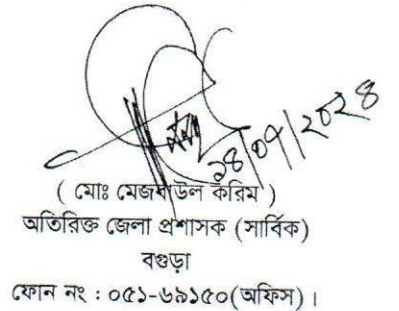 ১৪/০৭/২০২৪
( মোঃ মেজবাউল করিম )
অতিরিক্ত জেলা প্রশাসক (সার্বিক)
বগুড়া
ফোন নং : ০৫১-৬৯১৫০(অফিস)।